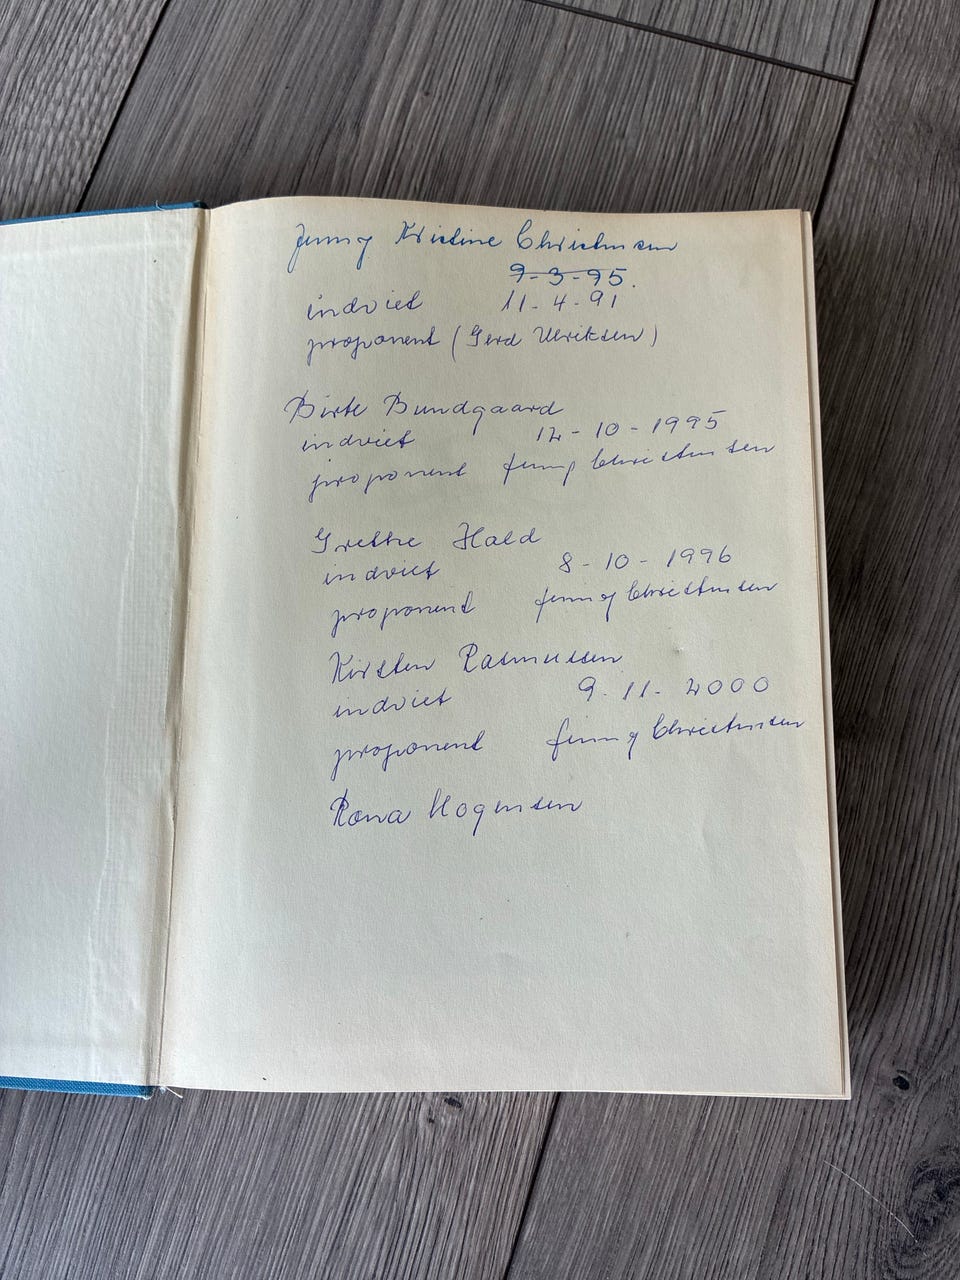 Jenny Kristine Christensen
9-3-95.
indviet 11-4-91
proponent (Gerd Ulriksen)
Birte Bundgaard
indviet 12-10-1995
proponent Jenny Christensen
Grethe Hald
indviet 8-10-1996
proponent Jenny Christensen
Kirsten Rasmussen
indviet 9-11-2000
proponent Jenny Christensen
Rona Mogensen